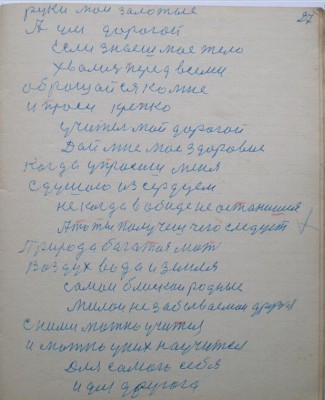 руки мои золотые
27
А ты дорогой
Если знаеш мое тело
Хвалиц перед всеми
оброщайся ко мне
и проси крепко
учитель мой дорогой
Дай мне мое здоровие
Когда упросили меня
с душою из сердцем
не когда в обиде не останишся
А то ты получиш чего следует
Природа багатая мат
Воздух вода и земля
самои блискои родные
милои не забываемои друзя
с ними можно учитця
и можно у них научится
Для самого себя
и для другого